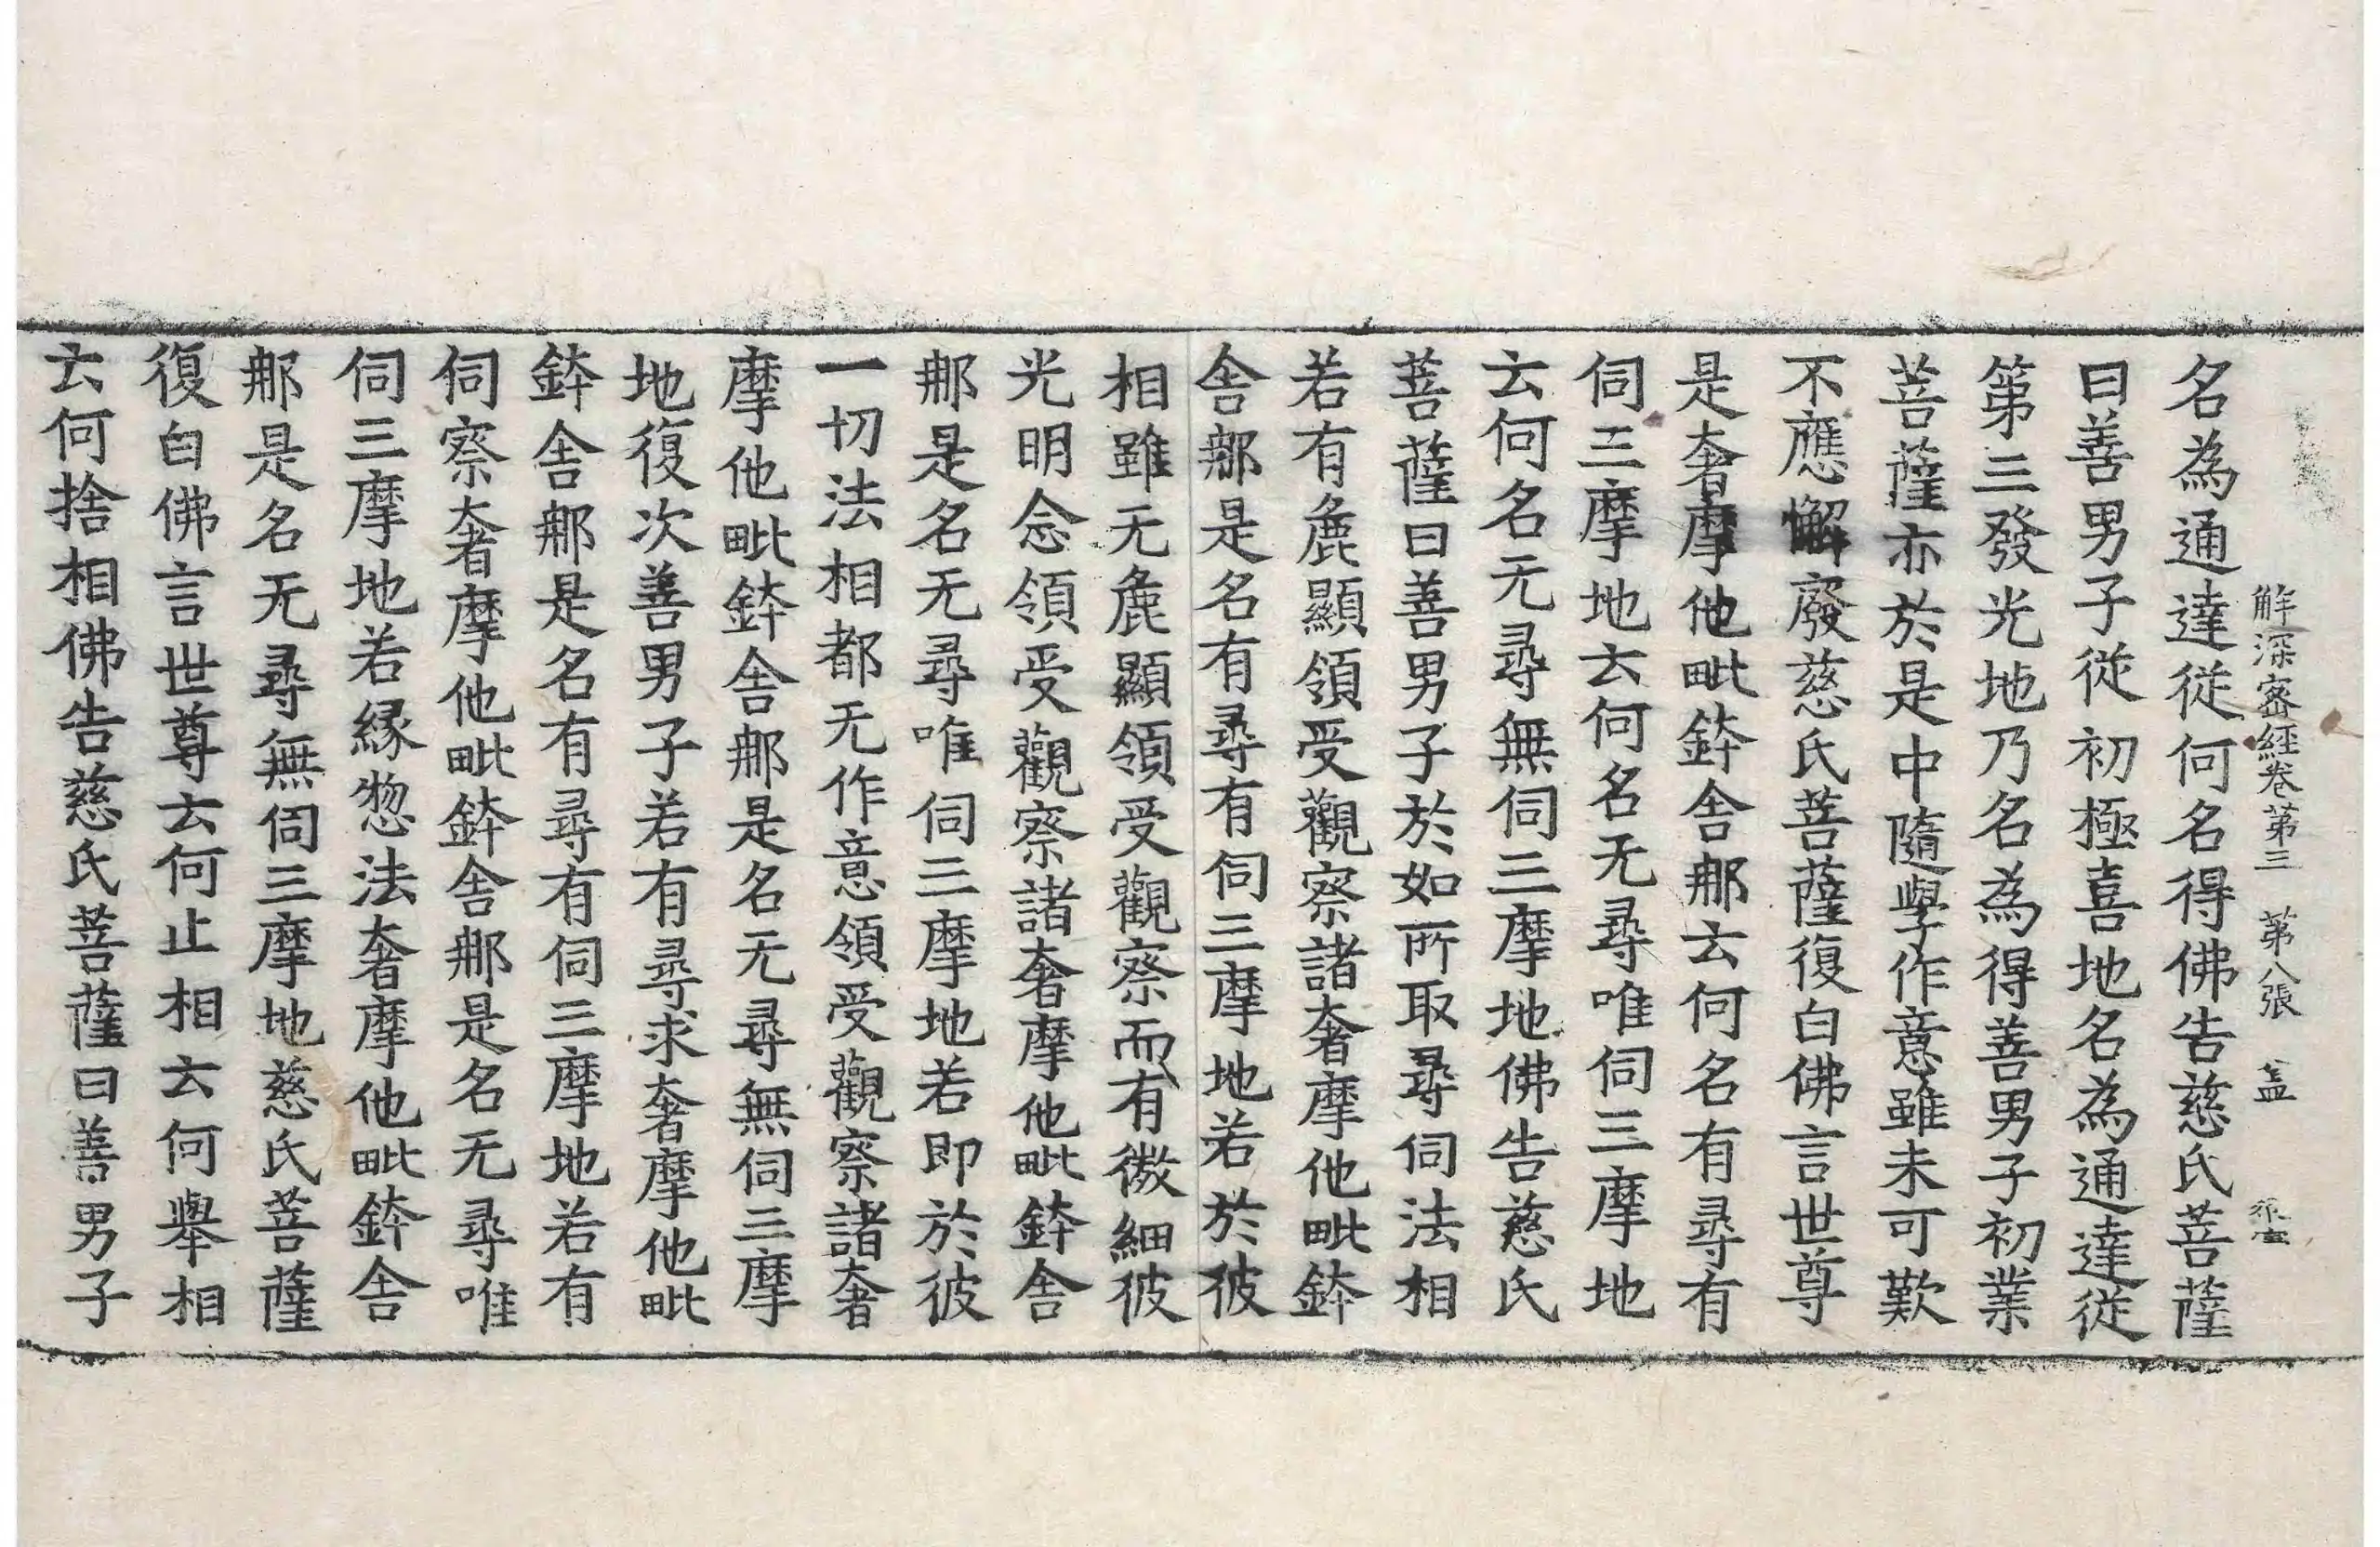 解深密經卷第三　第八張　盖
名為通達從何名得佛告慈氏菩薩
曰善男子從初極喜地名為通達從
第三發光地乃名為得善男子初業
菩薩亦於是中隨學作意雖未可歎
不應懈廢慈氏菩薩復白佛言世尊
是奢摩他毗鉢舍那云何名有尋有
伺三摩地云何名无尋唯伺三摩地
云何名无尋無伺三摩地佛告慈氏
菩薩曰善男子於如所取尋伺法相
若有麁顯領受觀察諸奢摩他毗鉢
舍那是名有尋有伺三摩地若於彼
相雖无麁顯領受觀察而有微細彼
光明念領受觀察諸奢摩他毗鉢舍
那是名无尋唯伺三摩地若即於彼
一切法相都无作意領受觀察諸奢
摩他毗鉢舍那是名无尋無伺三摩
地復次善男子若有尋求奢摩他毗
鉢舍那是名有尋有伺三摩地若有
伺察奢摩他毗鉢舍那是名无尋唯
伺三摩地若緣惣法奢摩他毗鉢舍
那是名无尋無伺三摩地慈氏菩薩
復白佛言世尊云何止相云何舉相
云何捨相佛告慈氏菩薩曰善男子